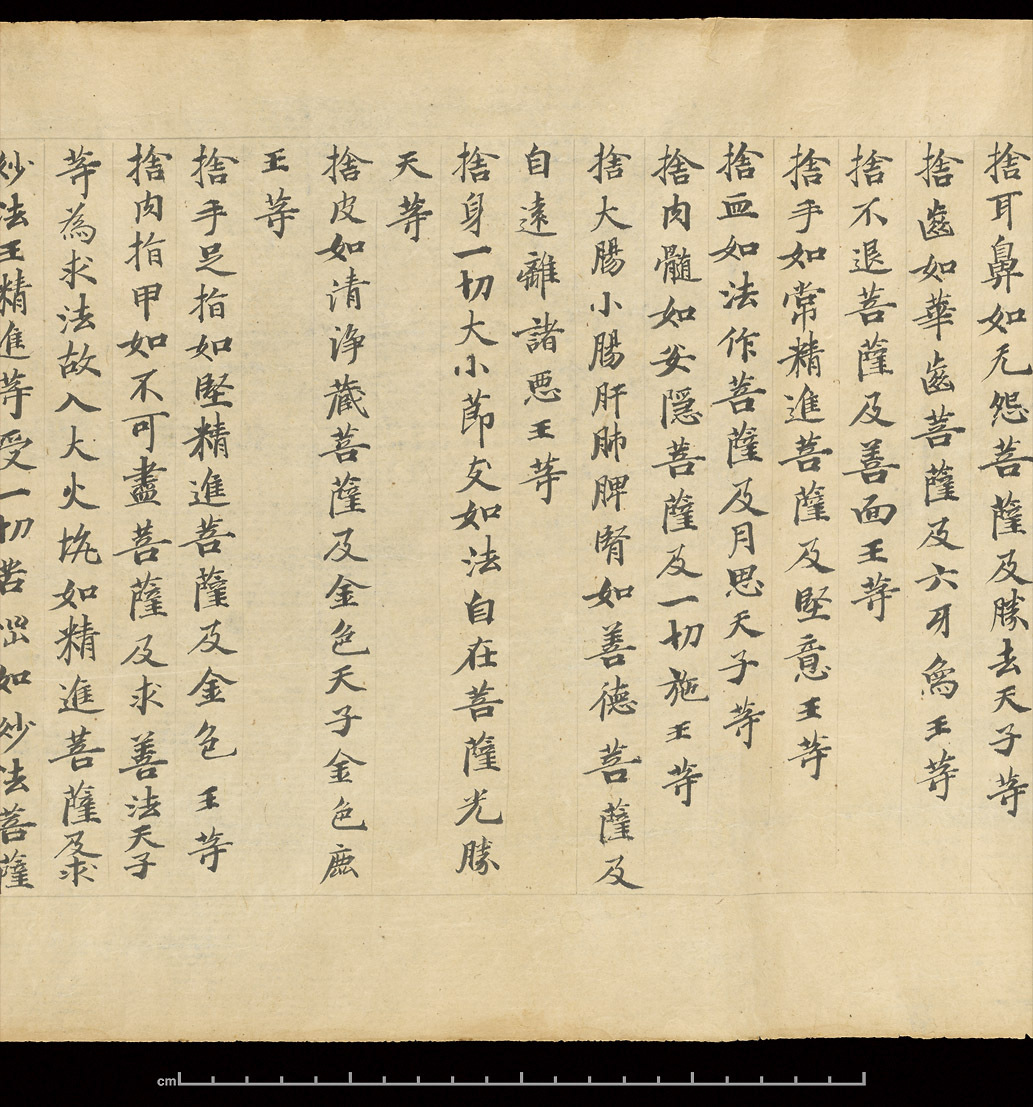 捨耳鼻如无怨菩薩及勝去天子等
捨齒如華齒菩薩及六牙爲王等
捨不退菩薩及善面王等
捨手如常精進菩薩及堅意王等
捨血如法作菩薩及月思天子等
捨肉髓如安隱菩薩及一切施王等
捨大腸小腸肝肺脾腎如善德菩薩及
自遠離諸惡王等
捨身一切大小節支如法自在菩薩光勝
天等
捨皮如清淨藏菩薩及金色天子金色鹿
王等
捨手足指如堅精進菩薩及金色王等
捨肉指甲如不可盡菩薩及求善法天子
等為求法故入大火坑如精進菩薩及求
妙法王精進等受一切苦惱如妙法菩薩
cm